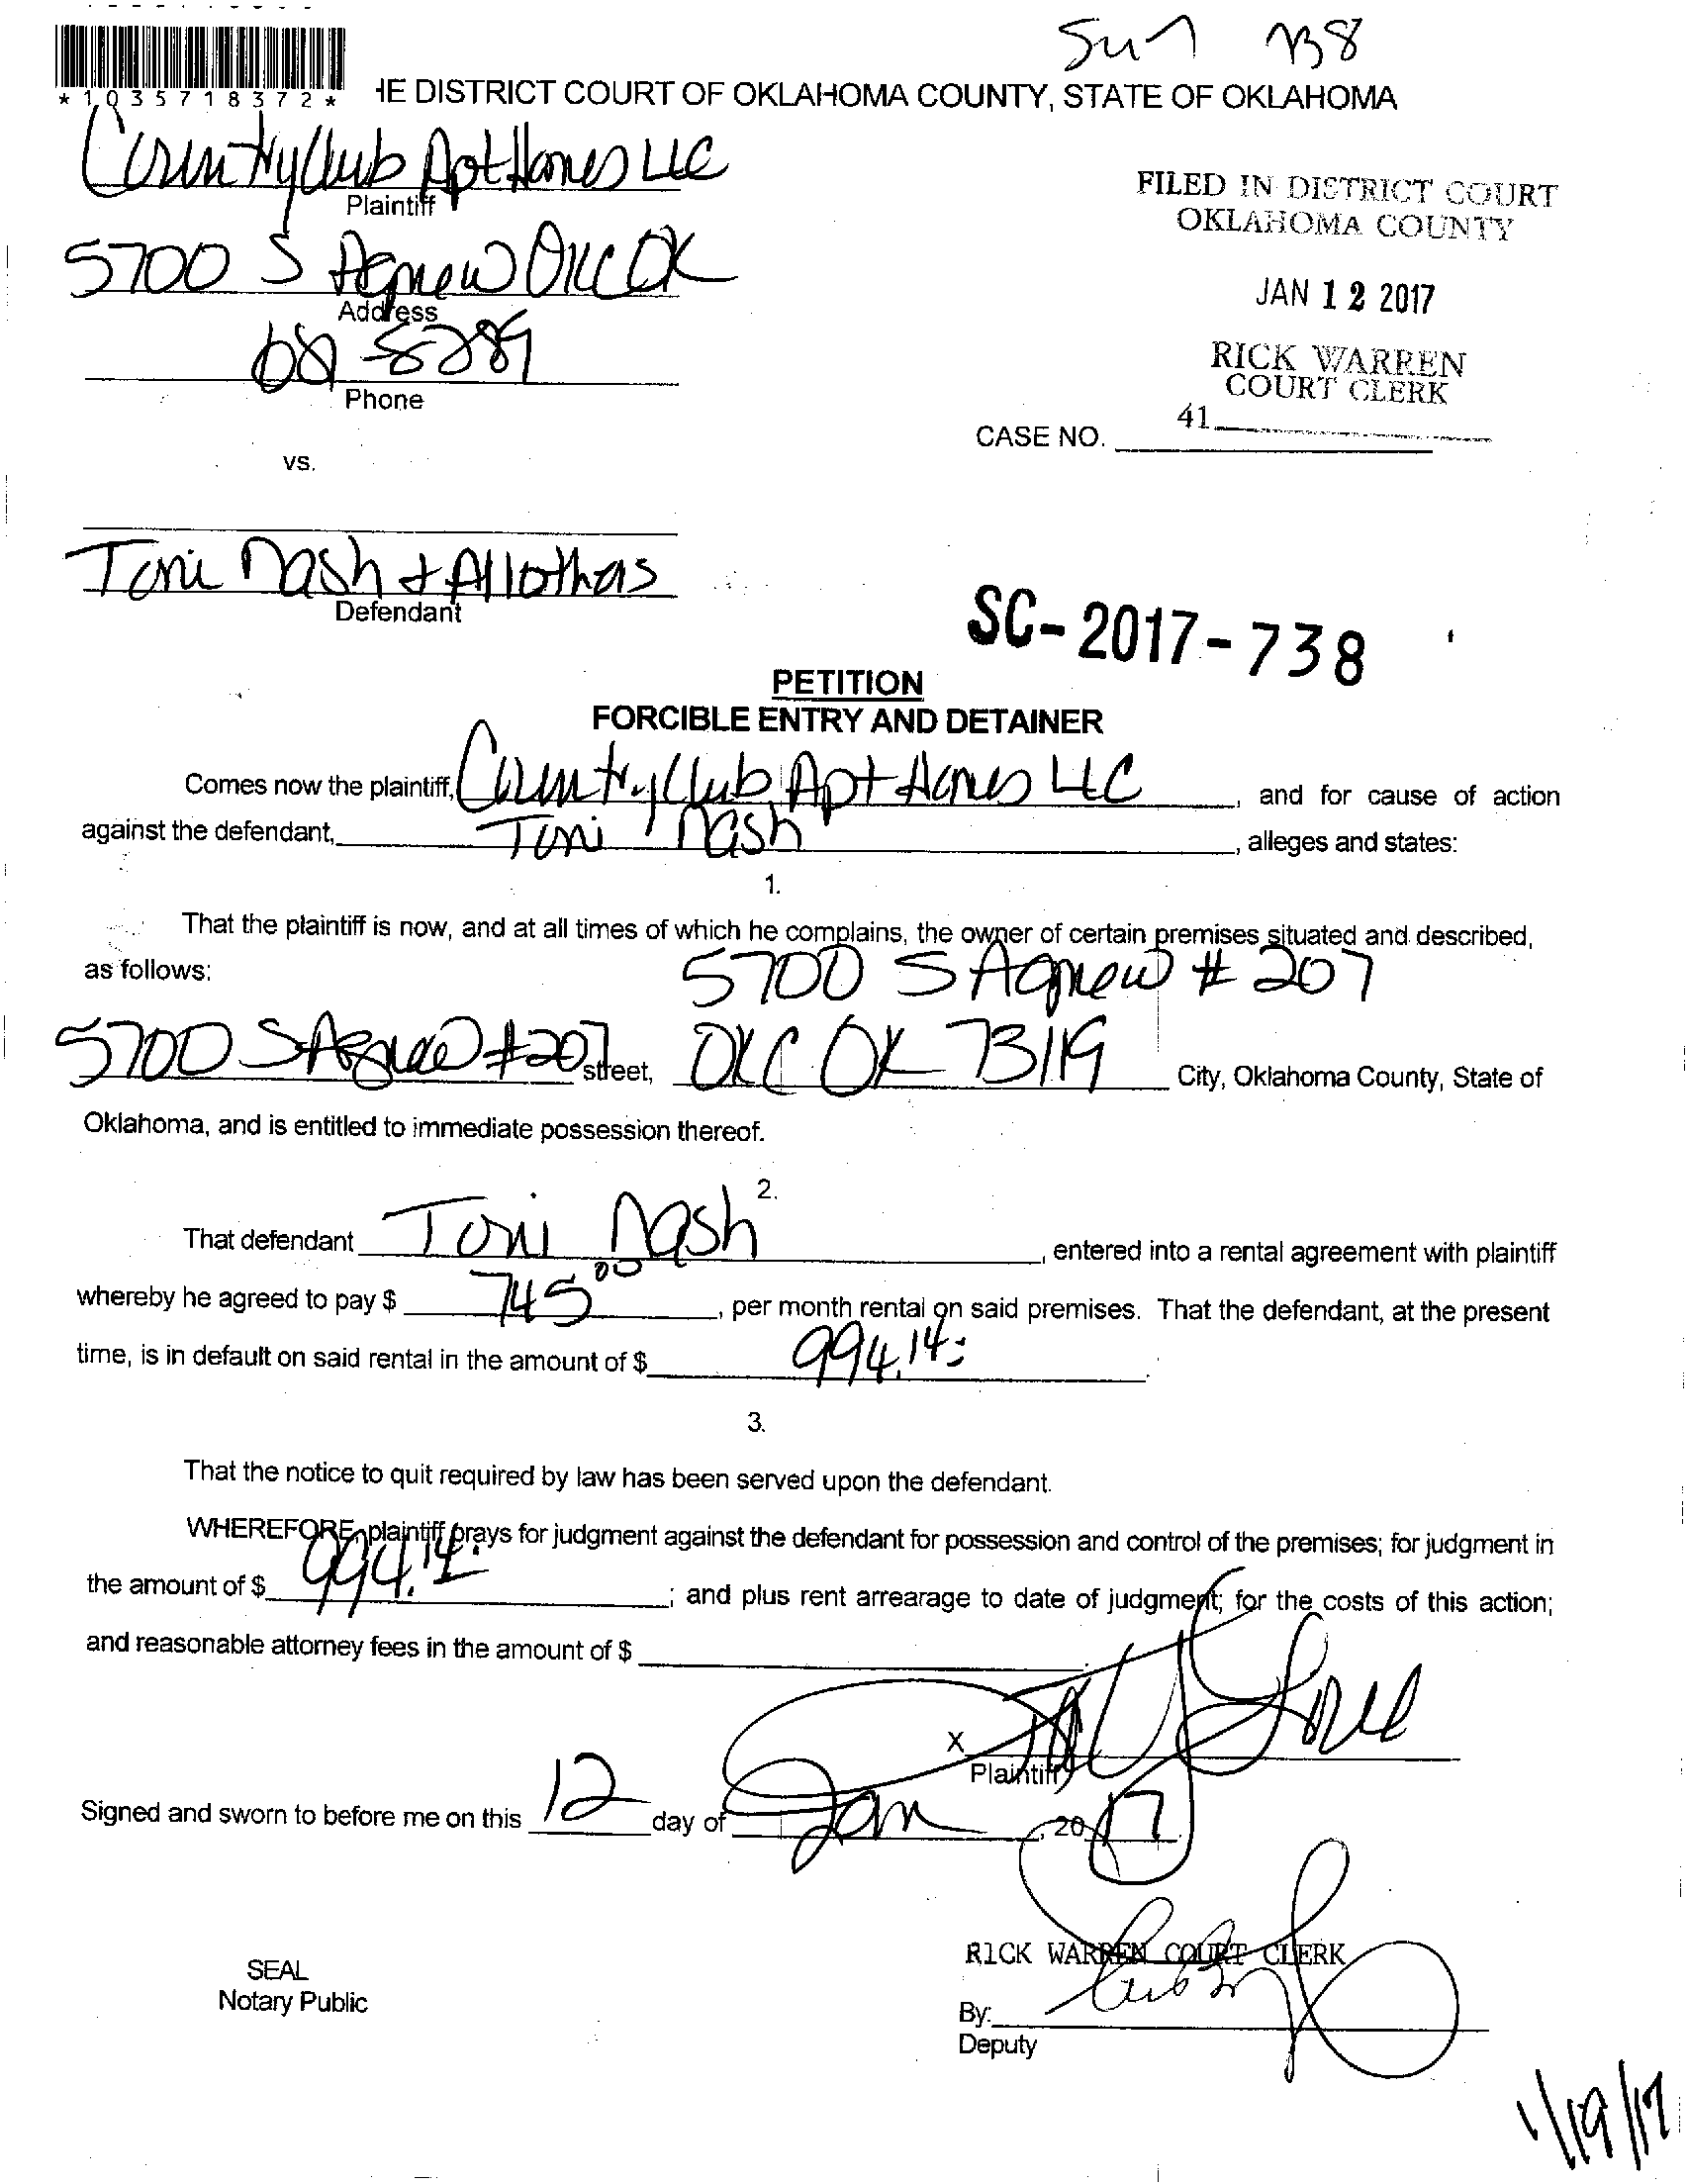 738
*1035718372*
HE DISTRICT COURT OF OKLAHOMA COUNTY, STATE OF OKLAHOMA
Country Club Apt Homes LLC
Plaintiff
FILED IN DISTRICT COURT
OKLAHOMA COUNTY
5700 S Agnew OKC OK
Address
JAN 12 2017
8289
Phone
RICK WARREN
COURT CLERK
41
CASE NO.
vs.
Toni Nash + All others
Defendant
SC-2017-738
PETITION
FORCIBLE ENTRY AND DETAINER
Comes now the plaintiff, Country Club Apt Homes LLC, and for cause of action
against the defendant, Toni Nash, alleges and states:
1.
That the plaintiff is now, and at all times of which he complains, the owner of certain premises situated and described,
as follows: 5700 S Agnew # 207
5700 S Agnew #207 street, OKC OK 73119 City, Oklahoma County, State of
Oklahoma, and is entitled to immediate possession thereof.
2.
That defendant Toni Nash, entered into a rental agreement with plaintiff
whereby he agreed to pay $ 745 00, per month rental on said premises. That the defendant, at the present
time, is in default on said rental in the amount of $ 994.14.
3.
That the notice to quit required by law has been served upon the defendant.
WHEREFORE, plaintiff prays for judgment against the defendant for possession and control of the premises; for judgment in
the amount of $ 994.14; and plus rent arrearage to date of judgment; for the costs of this action;
and reasonable attorney fees in the amount of $
X
Plaintiff
Signed and sworn to before me on this 12 day of Jan, 2017.
SEAL
Notary Public
RICK WARREN COURT CLERK
By:
Deputy
1/19/17